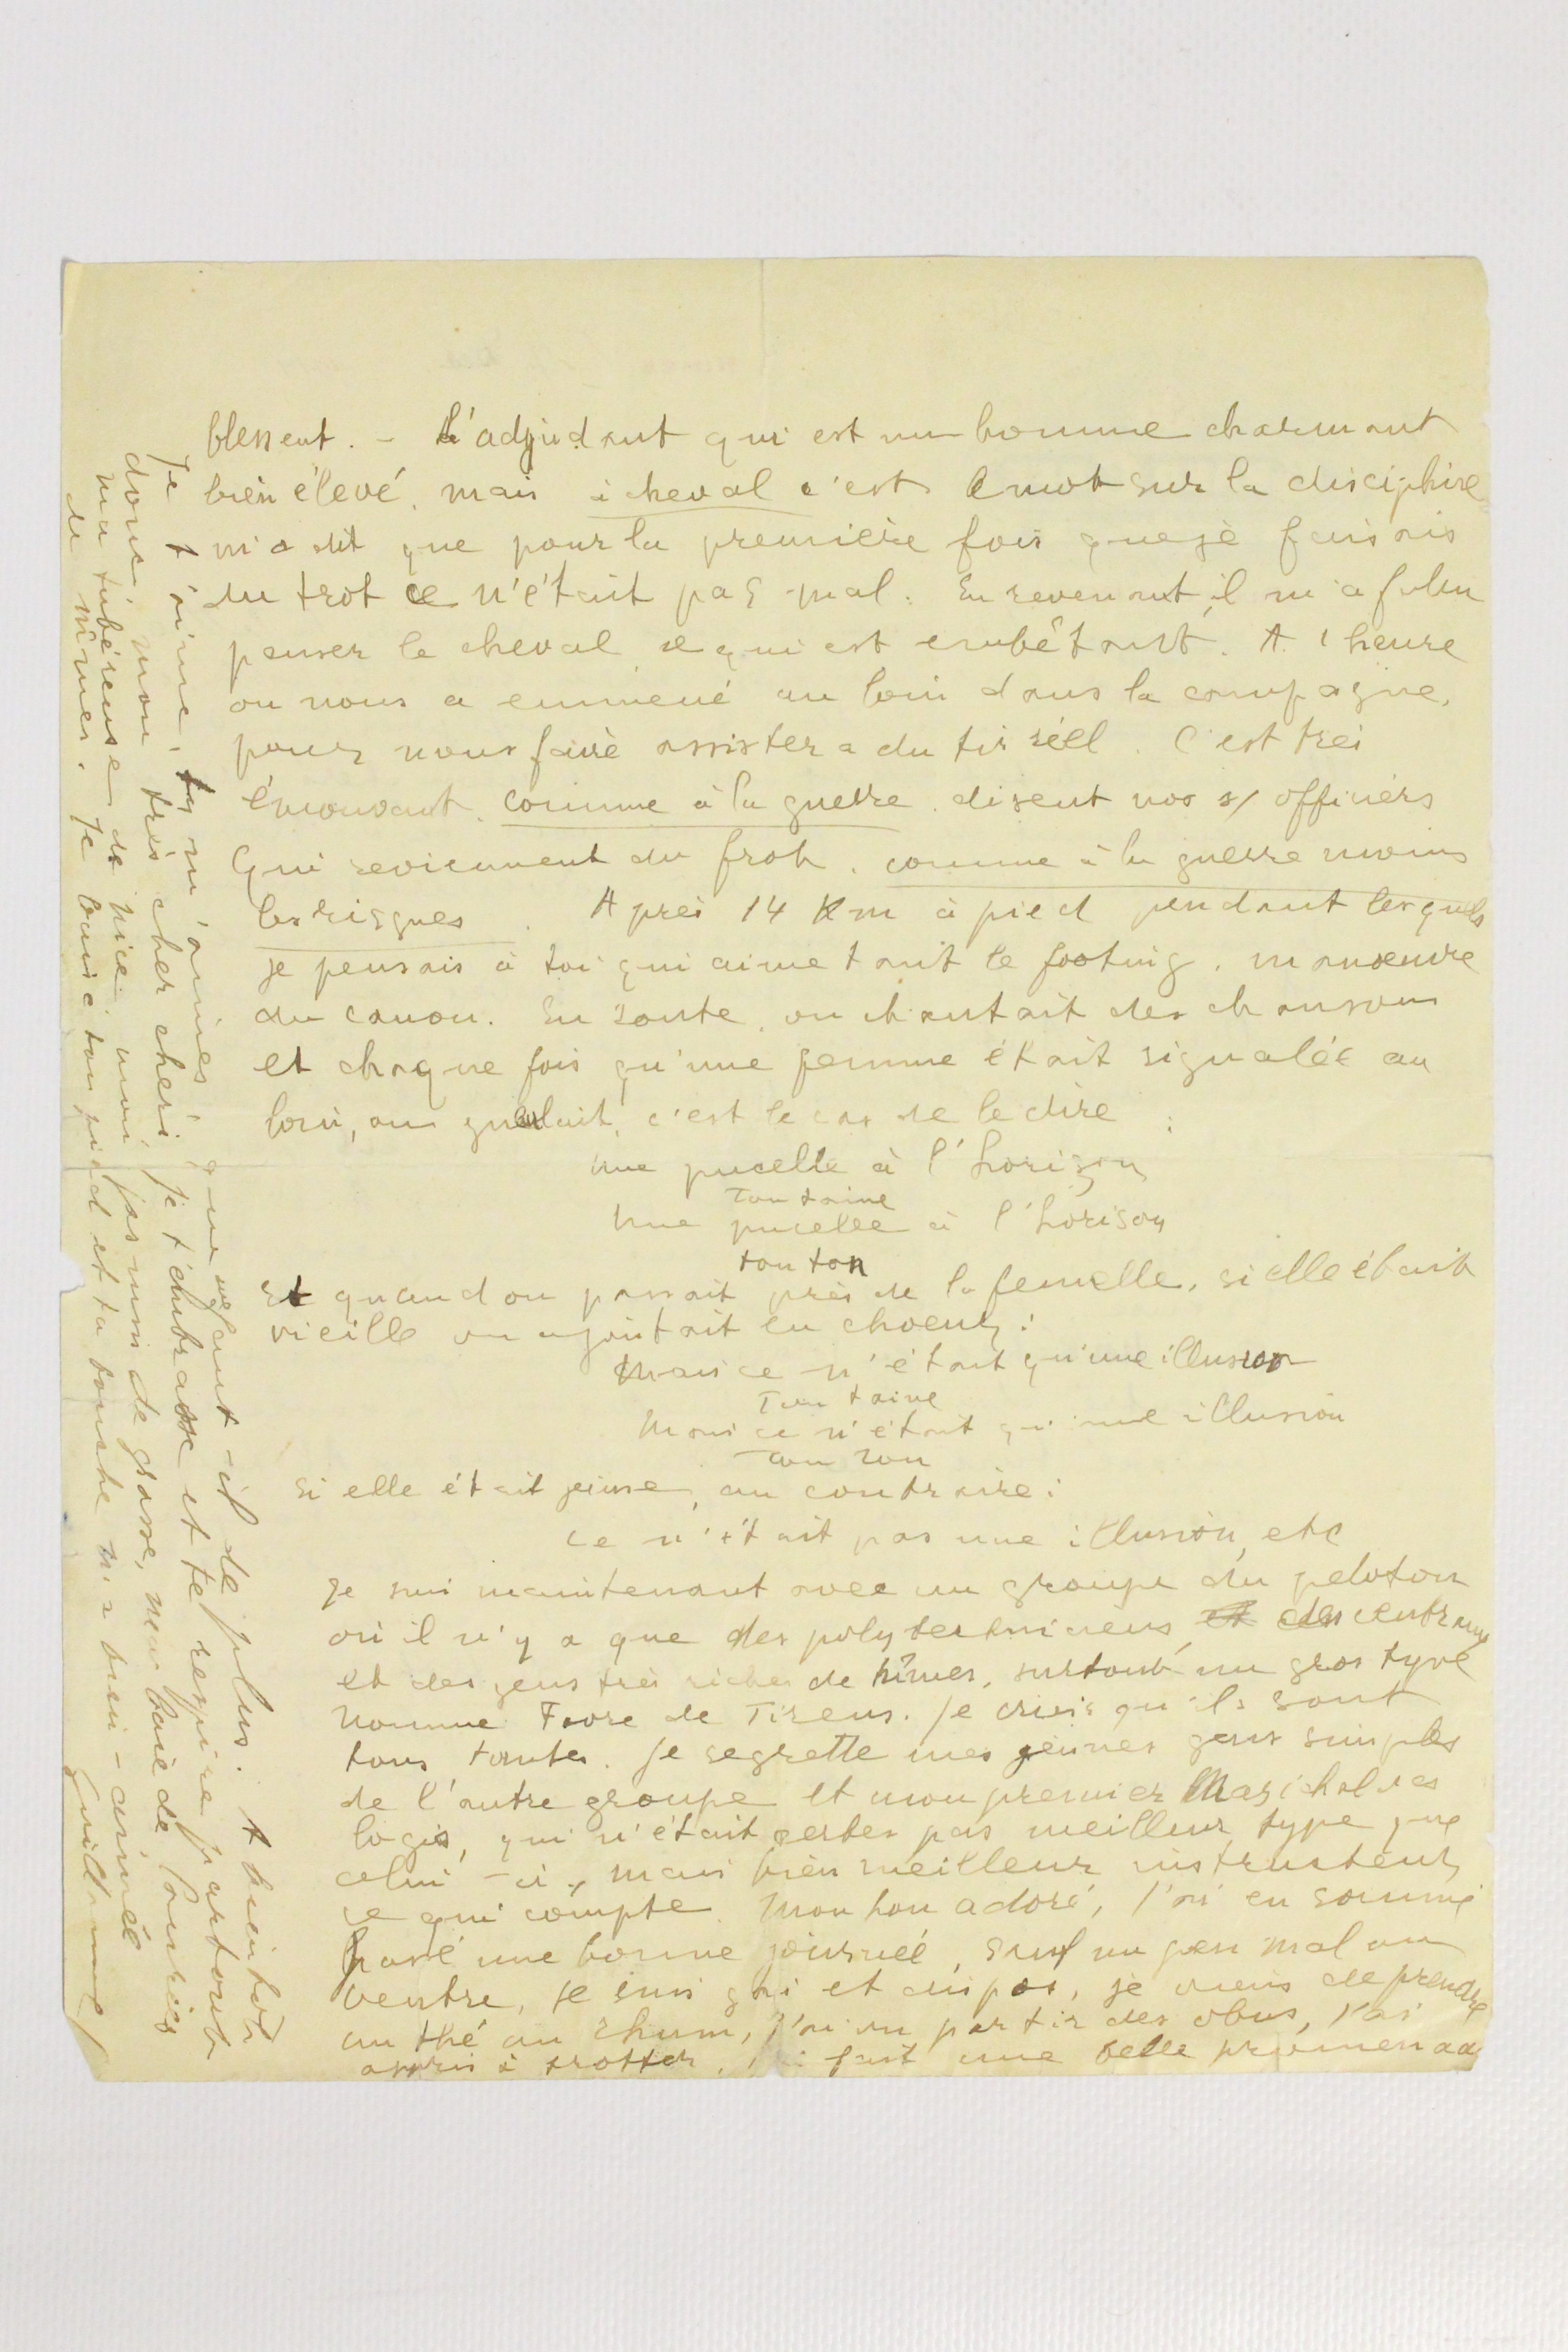 blessent. - L'adjudant qui est un homme charmant
bien élevé, mais à cheval c'est sur la discipline
m'a dit que pour la première fois que je faisais
du trot ce n'était pas mal. En revenant, il m'a fallu
panser le cheval ce qui est embêtant. A 1 heure
on nous a emmené au loin dans la campagne,
pour nous faire assister a du tir réel. C'est très
émouvant, comme à la guerre disent nos s/ officiers
qui reviennent du front. comme à la guerre moins
les risques. Après 14 Km à pied pendant lesquels
je pensais à toi qui aime tant le footing, manœuvre
du canon. En route, on chantait des chansons
et chaque fois qu'une femme était signalée au
loin, on gueulait, c'est le cas de le dire :
Une pucelle à l'horizon
Ton taine
Une pucelle à l'horison
ton ton
Et quand on passait près de la femelle, si elle était
vieille on ajoutait en choeur :
Mais ce n'était qu'une illusion
Ton taine
Mais ce n'était qu'une illusion
ton ton
Si elle était jeune, au contraire :
Ce n'était pas une illusion, etc
Je suis maintenant avec un groupe du peloton
où il n'y a que des polytechniciens, des centraux
et des gens très riches de Nîmes, surtout un gros type
nommé de Tirens. Je crois qu'ils sont
tous tantes. Je regrette mes jeunes gens simples
de l'autre groupe et mon premier Maréchal des
logis, qui n'était certes pas meilleur type que
celui-ci, mais bien meilleur instructeur,
ce qui compte. Mon Lou adoré, j'ai en somme
passé une bonne journée, sauf un peu mal au
ventre, je suis gai et dispos, je viens de prendre
un thé au rhum, j'ai vu partir des obus, j'ai
appris à trotter, j'ai fait une belle promenade
Je t'aime, tu m'aimes, que me faut-il de plus. A bientôt
donc, mon très cher chéri, je t'embrasse et te respire partout
ma tubéreuse de Nice, mon jasmin de grasse, ma baie de laurier
de Nîmes. Je baise ton pied et ta bouche ma bien-aimée
Guillaume